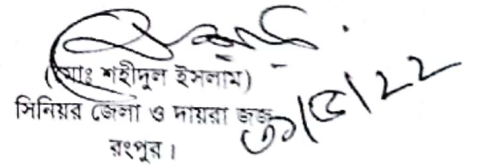 (মোঃ শহীদুল ইসলাম)
সিনিয়র জেলা ও দায়রা জজ
রংপুর।